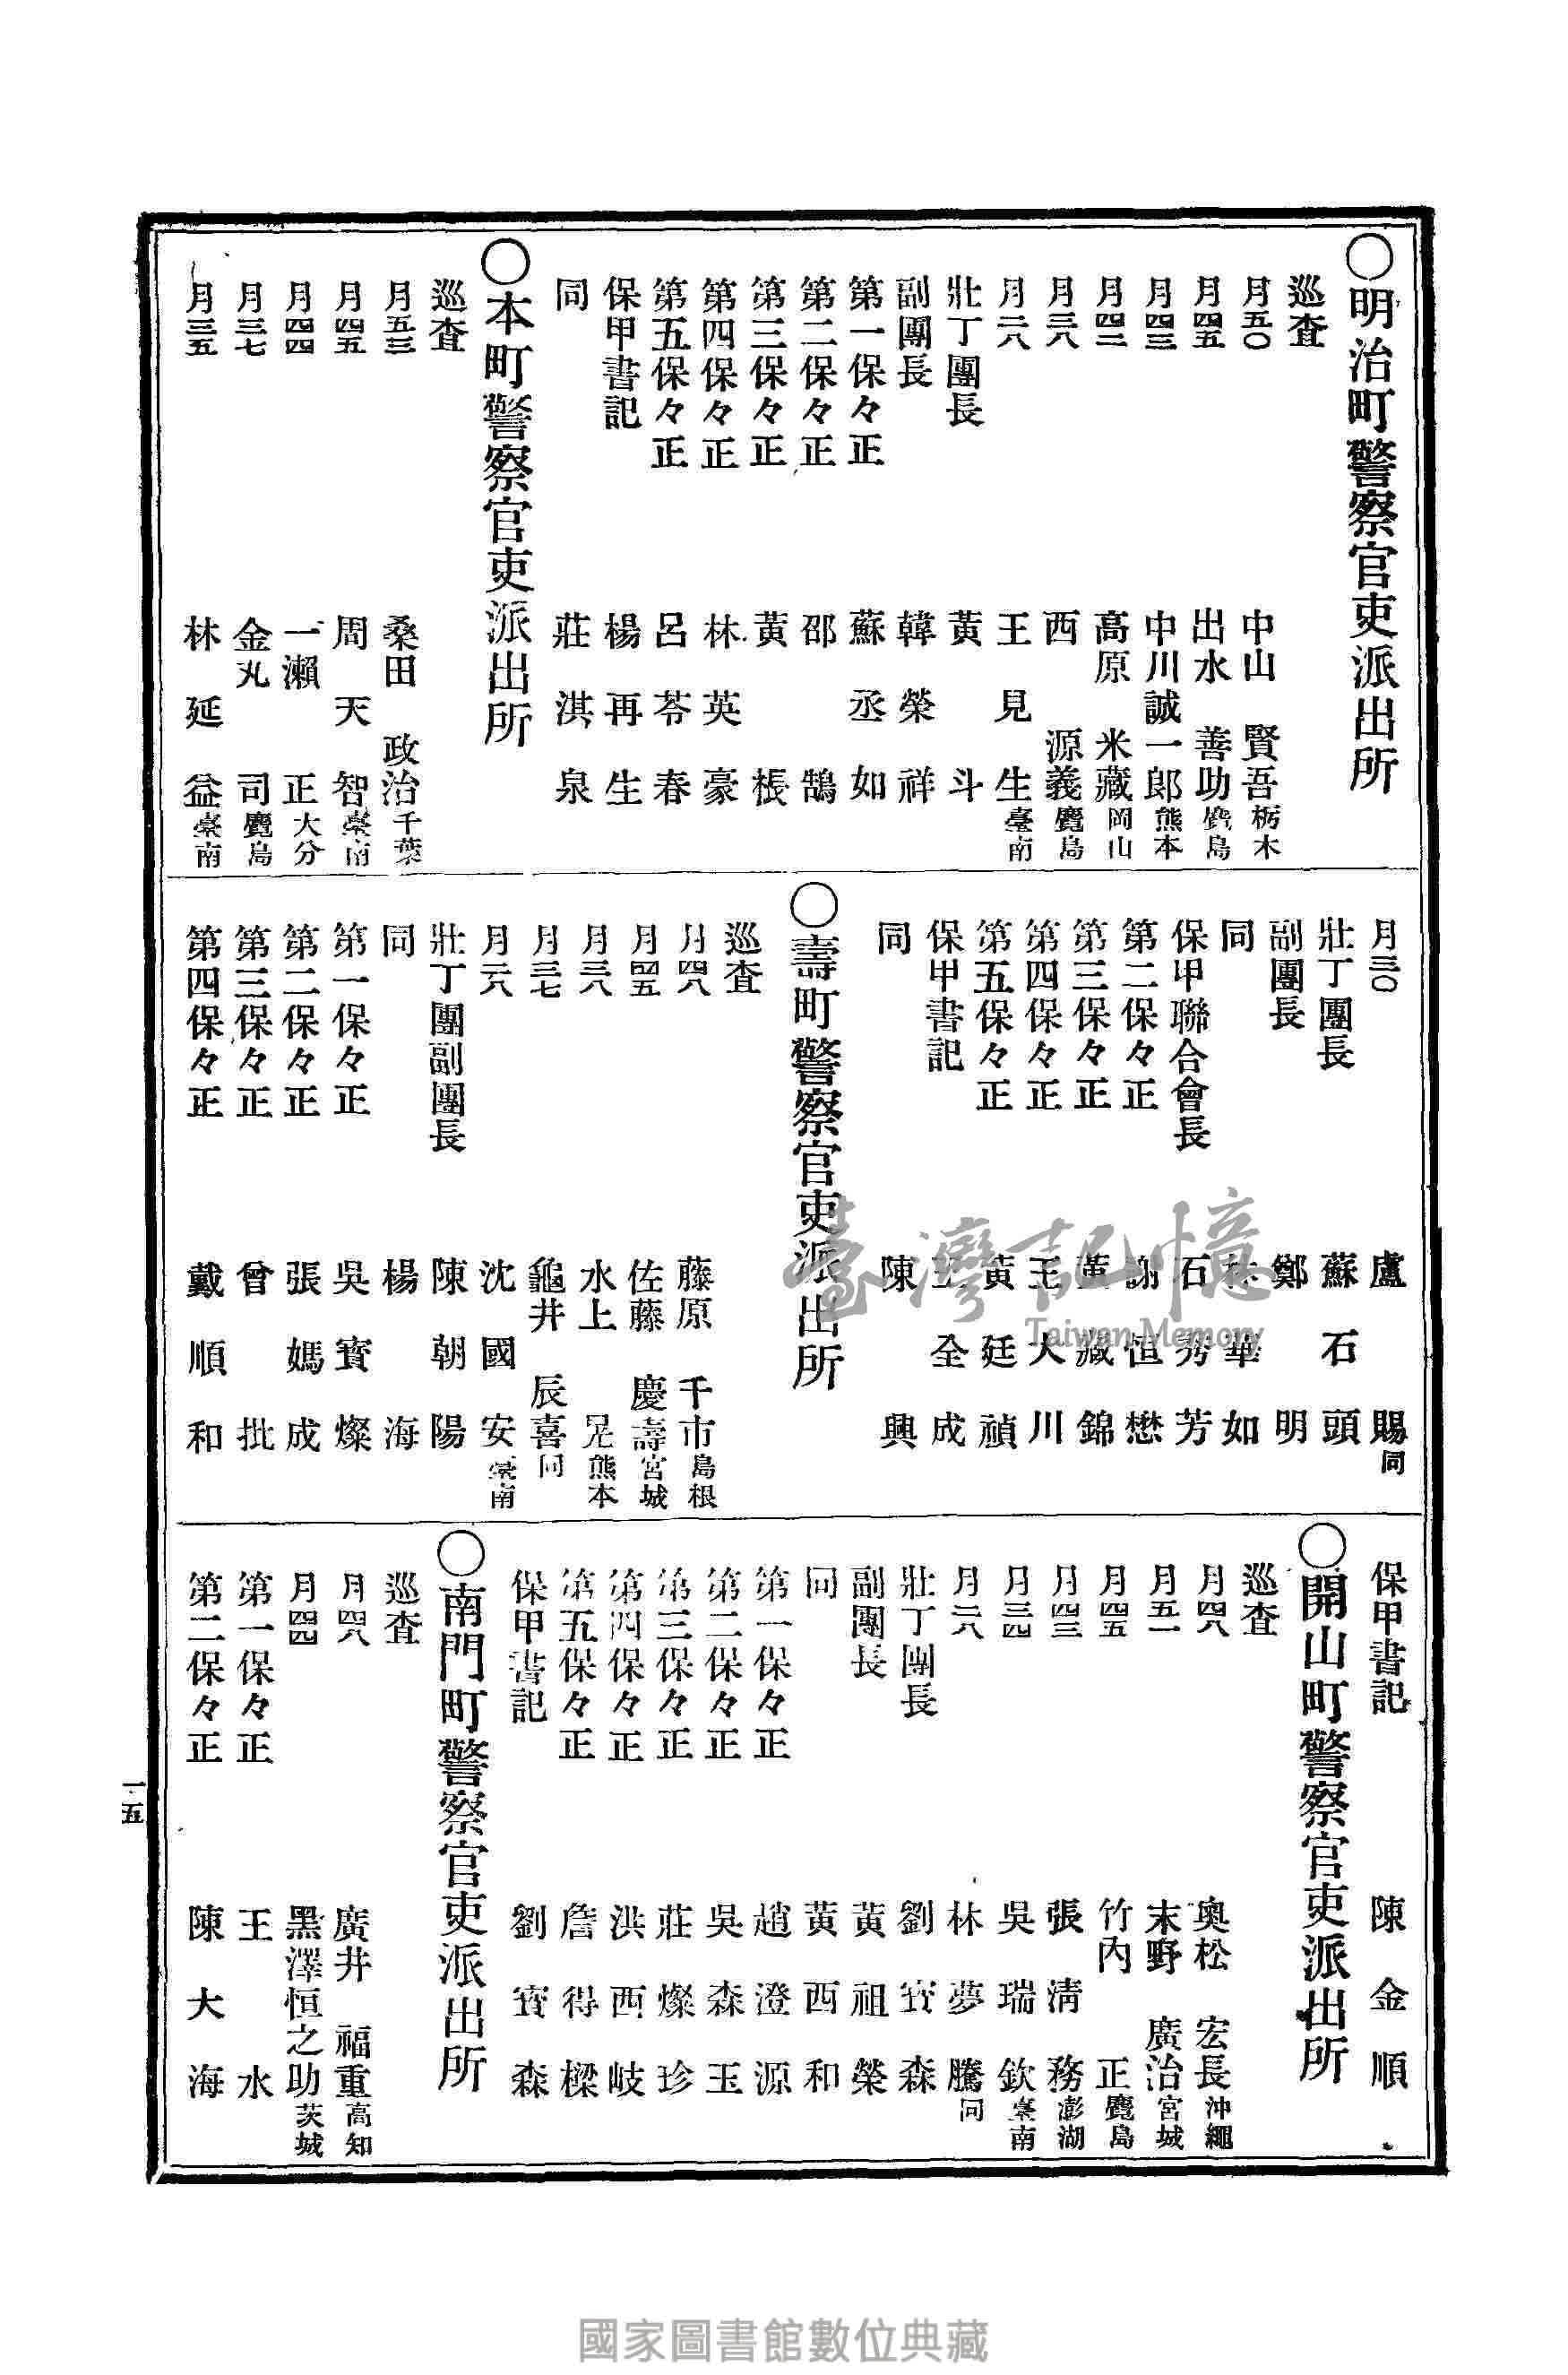 ○明治町警察官吏派出所
巡査
月五〇 中山 賢吾 栃木
月四五 出水 善助 鹿島
月四三 中川誠一郎 熊本
月四二 高原 米藏 岡山
月三八 西 源義 鹿島
月二八 王見生 臺南
壯丁團長 黃斗
副團長 韓榮祥
第一保々正 蘇丞如
第二保々正 邵鵠
第三保々正 黃棖
第四保々正 林英豪
第五保々正 呂苓春
保甲書記 楊再生
同 莊淇泉
○本町警察官吏派出所
巡査
月五三 桑田 政治 千葉
月四五 周天智 臺南
月四四 一瀨 正 大分
月三七 金丸 司 鹿島
月三五 林延益 臺南
月三〇 盧賜 同
壯丁團長 蘇石頭
副團長 鄭明
同 林華如
保甲聯合會長 石秀芳
第二保々正 謝恒懋
第三保々正 黃藏錦
第四保々正 王大川
第五保々正 黃廷禎
保甲書記 王全成
同 陳興
○壽町警察官吏派出所
巡査
月四八 藤原 千市 島根
月四五 佐藤 慶壽 宮城
月三八 水上 兄 熊本
月三七 龜井 辰喜 同
月二八 沈國安 臺南
壯丁團副團長 陳朝陽
同 楊海
第一保々正 吳寶燦
第二保々正 張媽成
第三保々正 曾批
第四保々正 戴順和
保甲書記 陳金順
○開山町警察官吏派出所
巡査
月四八 奧松 宏長 沖繩
月五一 末野 廣治 宮城
月四五 竹內 正 鹿島
月四三 張淸務 澎湖
月三四 吳瑞欽 臺南
月二八 林夢騰 同
壯丁團長 劉寶森
副團長 黃祖榮
同 黃西和
第一保々正 趙澄源
第二保々正 吳森玉
第三保々正 莊燦珍
第四保々正 洪西岐
第五保々正 詹得樑
保甲書記 劉寶森
○南門町警察官吏派出所
巡査
月四八 廣井 福重 高知
月四四 黑澤恒之助 茨城
第一保々正 王水
第二保々正 陳大海
一五
臺灣記憶
Taiwan Memory
國家圖書館數位典藏